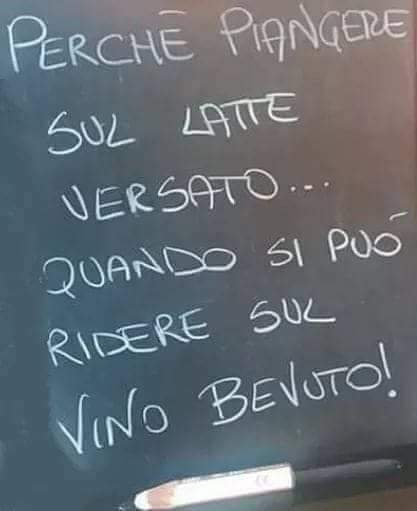 PERCHĒ PIANGERE
SUL LATTE
VERSATO...
QUANDO SI PUÓ
RIDERE SUL
VINO BEVUTO!